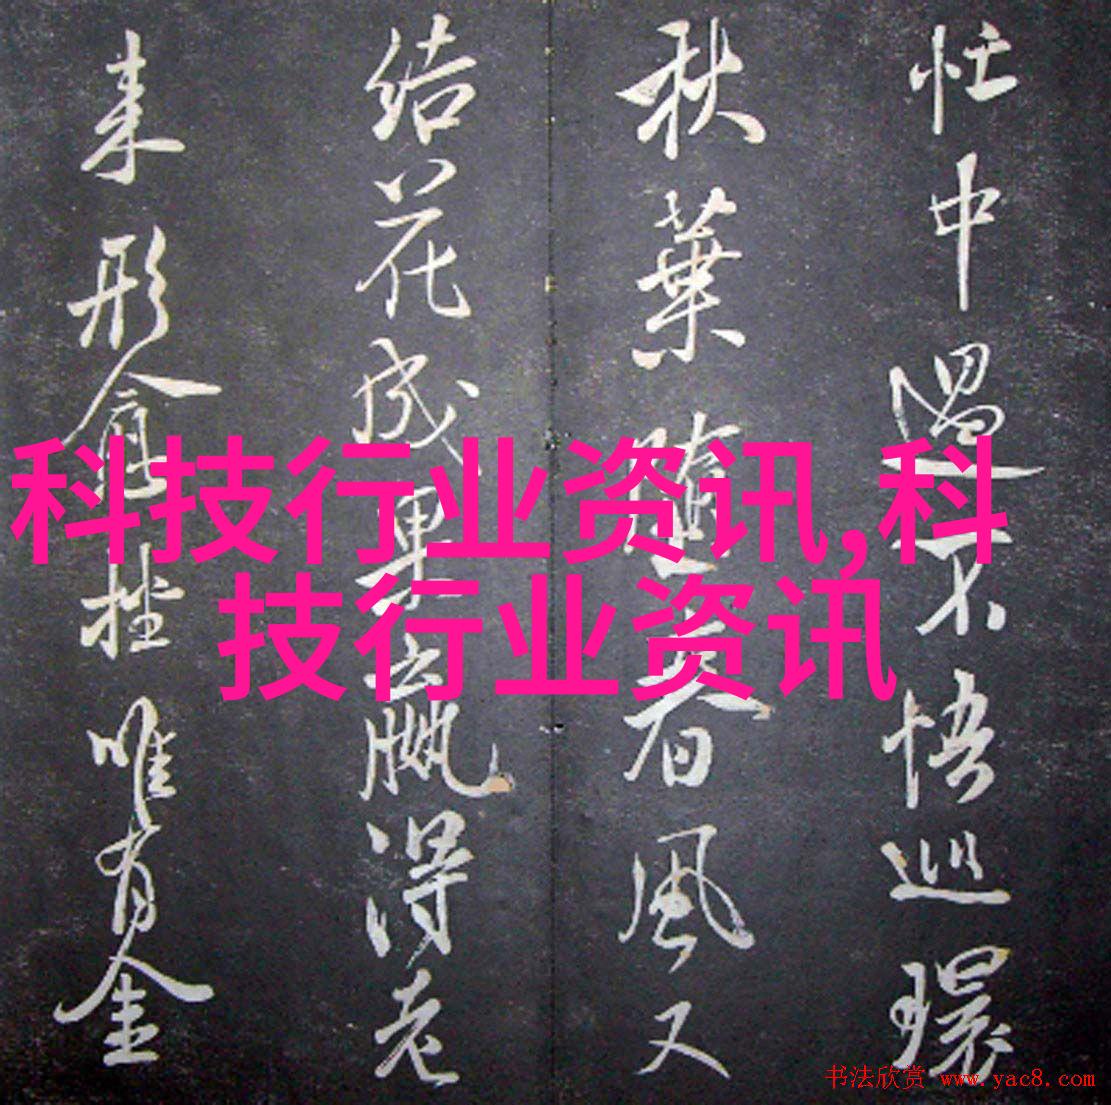 忙中過不悟巡環
秋葉隨春風又
結花成果嬴得老
来形唯有金
科技行业资讯,科
技行业资讯
书法欣赏 www.yac8.com